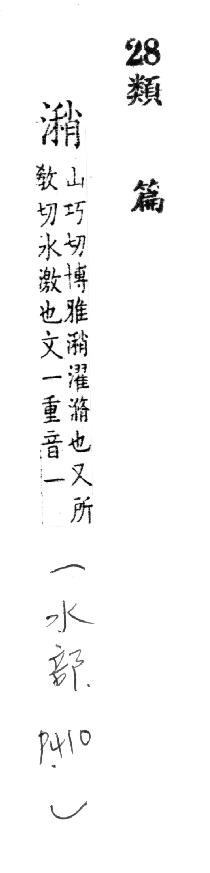 28 類篇
潲
山巧切博雅潲濯滫也又所
敎切水激也文一重音一
(水部. P410.)